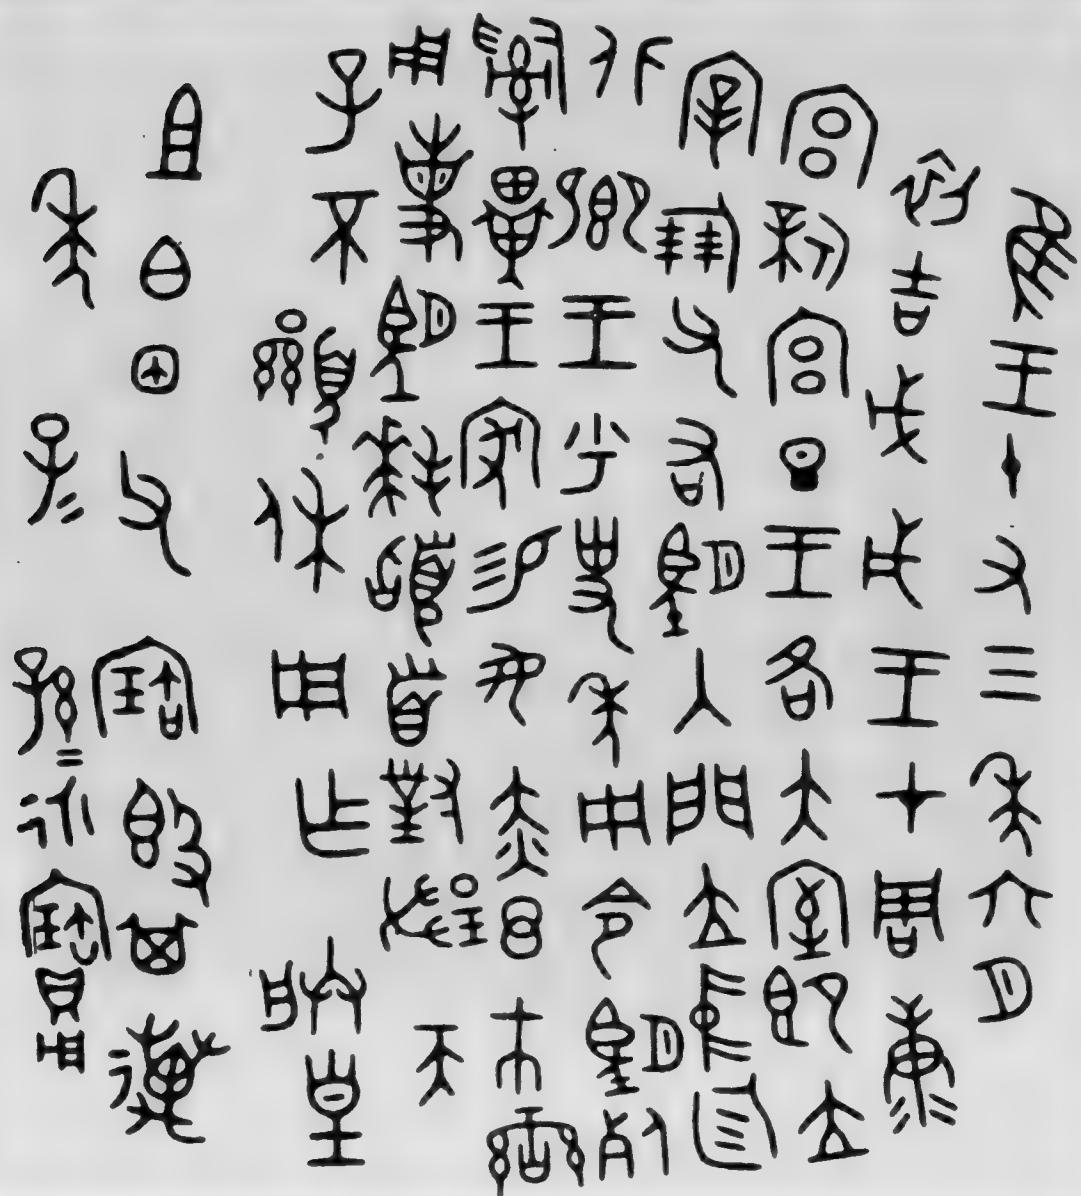 隹王十又三年六月
初吉戊戌王才周康
宮新宮旦王各大室即立
宰倗父右朢入門立中廷
北鄉王乎史年冊令朢死
𤔲畢王家易女赤𢁛市䜌
用事朢拜𩒨首對揚天
子不顯休用乍朕皇
且白囧父寶𣪘其萬
年子=孫=永寶用